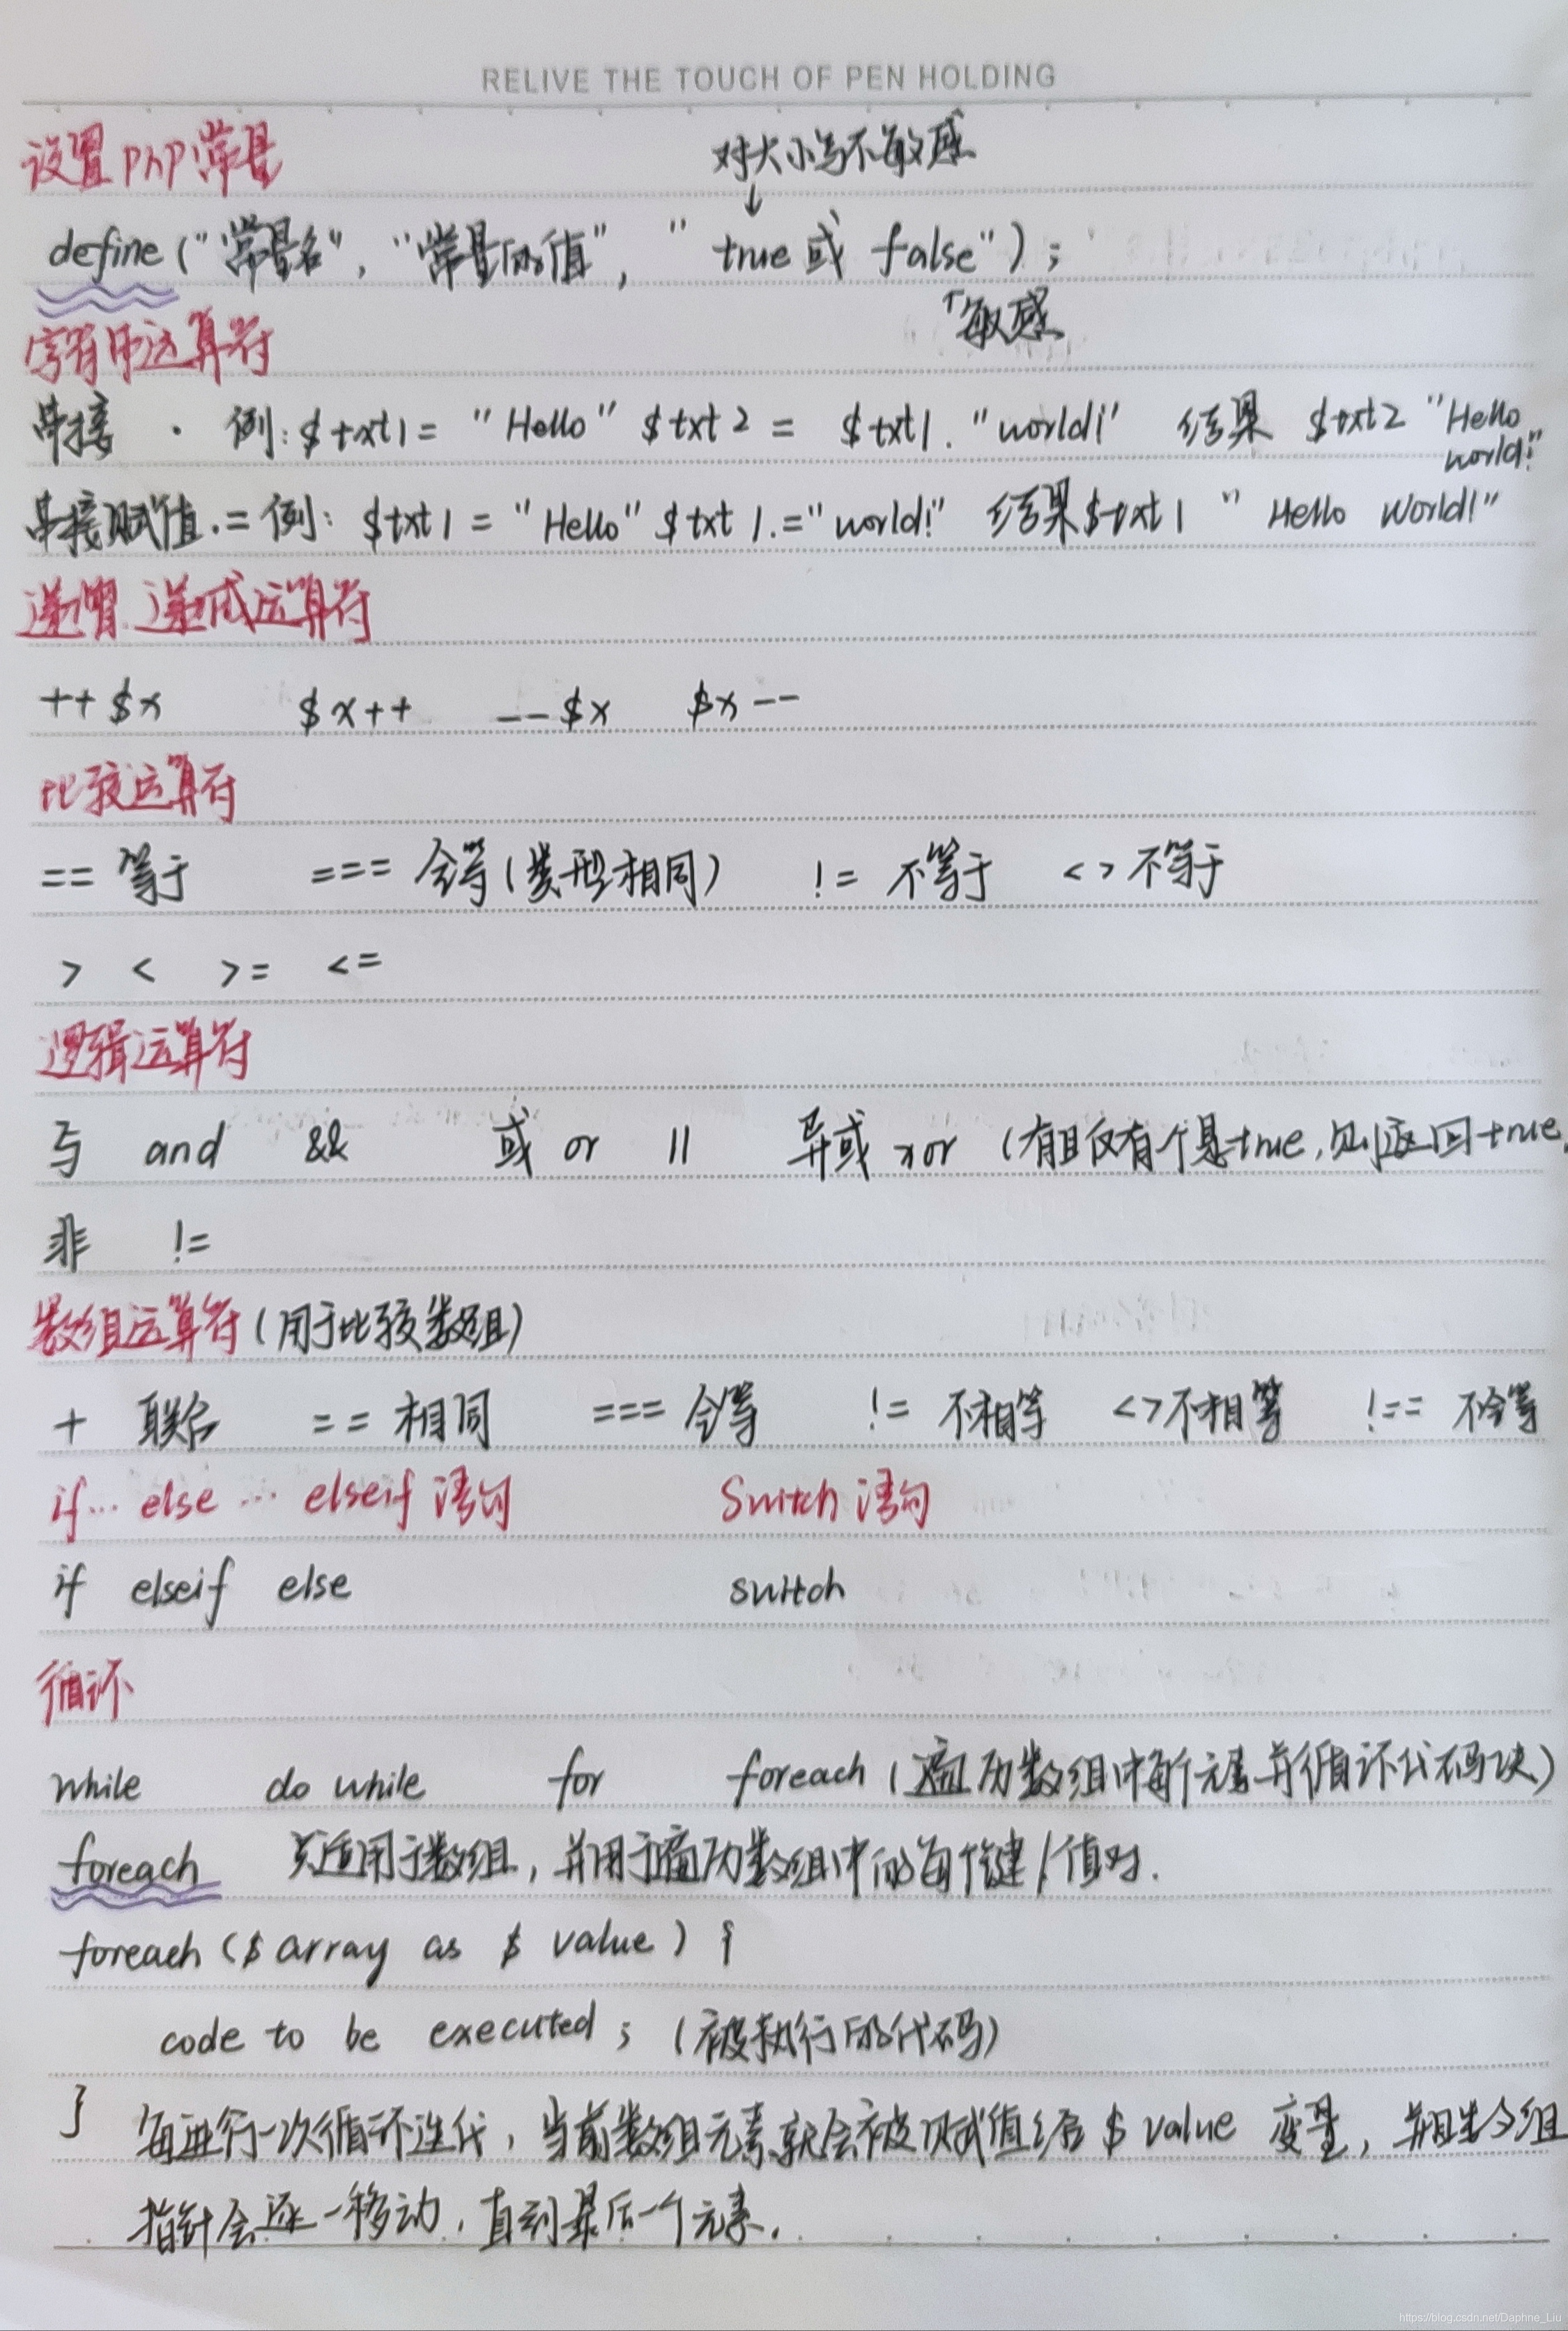 RELIVE THE TOUCH OF PEN HOLDING
设置php常量
对大小写不敏感
↓
define("常量名", "常量的值", "true或 false");
↑敏感
字符串运算符
串接 · 例:$txt1= "Hello" $txt2 = $txt1."world!" 结果 $txt2 "Hello
world!"
串接赋值.= 例: $txt1 = "Hello" $txt1.="world!" 结果$txt1 "Hello World!"
递增.递减运算符
++$x $x++ --$x $x--
比较运算符
== 等于 === 全等(类型相同) != 不等于 <>不等于
> < >= <=
逻辑运算符
与 and && 或 or || 异或 xor (有且仅有个是true,则返回true,
非 !=
数组运算符(用于比较数组)
+ 联合 == 相同 === 全等 != 不相等 <>不相等 !== 不全等
if… else … elseif 语句 Switch 语句
if elseif else switch
循环
while do while for foreach (遍历数组中每个元素并循环代码块)
foreach 只适用于数组,并用于遍历数组中的每个键/值对.
foreach ($array as $value) {
code to be executed; (被执行的代码)
} 每进行一次循环迭代,当前数组元素就会被赋值给 $value 变量,并且数组
指针会逐一移动,直到最后一个元素.
https://blog.csdn.net/Daphne_Liu